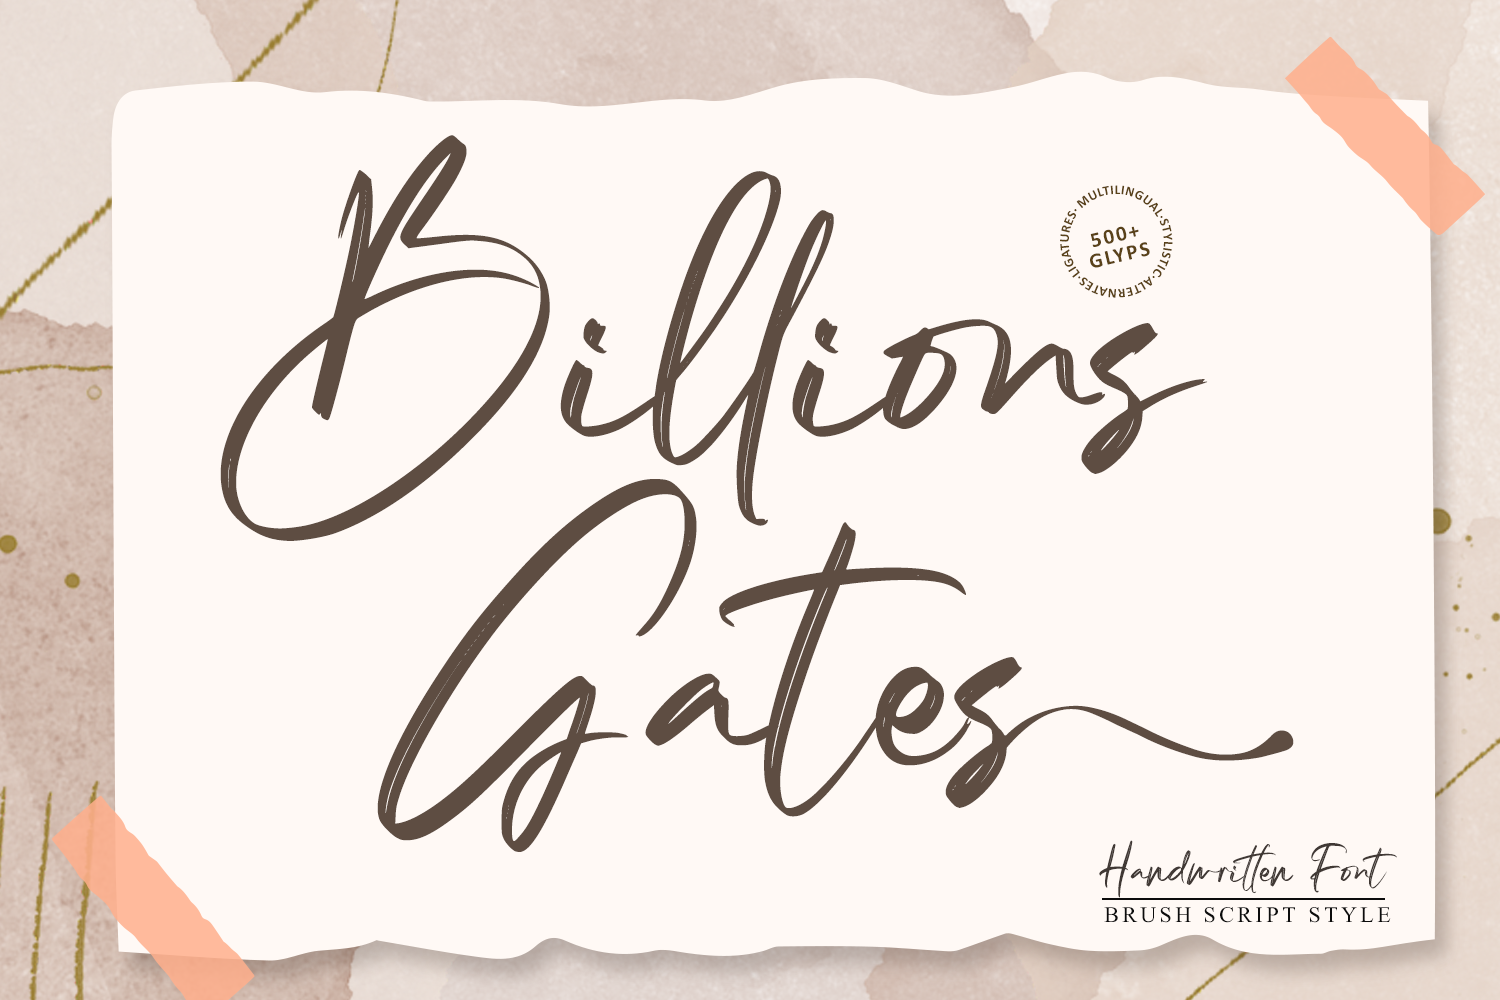 Billions
Gates
LIGATURES · MULTILINGUAL · STYLISTIC · ALTERNATES ·
500+
GLYPS
Handwritten Font
BRUSH SCRIPT STYLE